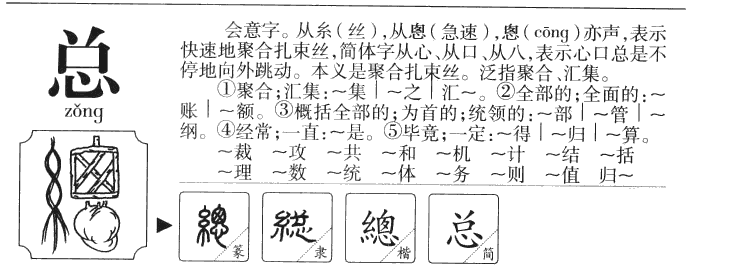 总
zǒng
会意字。从糸(丝),从悤(急速),悤(cōng)亦声,表示
快速地聚合扎束丝,简体字从心、从口、从八,表示心口总是不
停地向外跳动。本义是聚合扎束丝。泛指聚合、汇集。
①聚合;汇集:~集|~之|汇~。②全部的;全面的:~
账|~额。③概括全部的;为首的;统领的:~部|~管|~
纲。④经常;一直:~是。⑤毕竟;一定:~得|~归|~算。
~裁 ~攻 ~共 ~和 ~机 ~计 ~结 ~括
~理 ~数 ~统 ~体 ~务 ~则 ~值 归~
總 篆 総 隶 總 楷 总 简